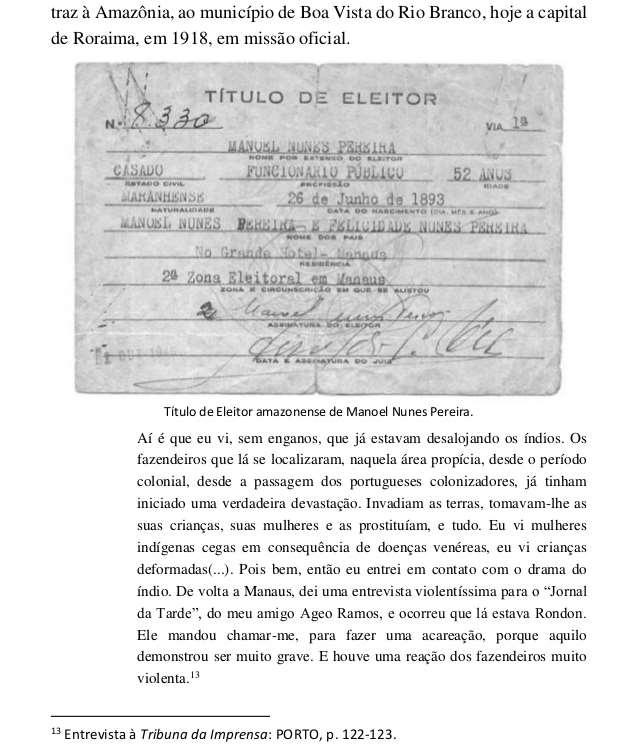 traz à Amazônia, ao município de Boa Vista do Rio Branco, hoje a capital
de Roraima, em 1918, em missão oficial.
TÍTULO DE ELEITOR
N.º 8.330
VIA 1ª
MANUEL NUNES PEREIRA
NOME POR EXTENSO DO ELEITOR
CASADO FUNCIONARIO PÚBLICO 52 ANOS
ESTADO CIVIL PROFISSÃO IDADE
MARANHENSE 26 de Junho de 1893
NATURALIDADE DATA DO NASCIMENTO (DIA, MÊS E ANO)
MANOEL NUNES PEREIRA E FELICIDADE NUNES PEREIRA
NOME DOS PAIS
No Grande Hotel- Manaus
RESIDÊNCIA
2ª Zona Eleitoral em Manaus
ZONA E CIRCUNSCRIÇÃO EM QUE SE ALISTOU
Manuel Nunes Pereira
ASSINATURA DO ELEITOR
DATA E ASSINATURA DO JUIZ
Título de Eleitor amazonense de Manoel Nunes Pereira.
Aí é que eu vi, sem enganos, que já estavam desalojando os índios. Os
fazendeiros que lá se localizaram, naquela área propícia, desde o período
colonial, desde a passagem dos portugueses colonizadores, já tinham
iniciado uma verdadeira devastação. Invadiam as terras, tomavam-lhe as
suas crianças, suas mulheres e as prostituíam, e tudo. Eu vi mulheres
indígenas cegas em consequência de doenças venéreas, eu vi crianças
deformadas(...). Pois bem, então eu entrei em contato com o drama do
índio. De volta a Manaus, dei uma entrevista violentíssima para o “Jornal
da Tarde”, do meu amigo Ageo Ramos, e ocorreu que lá estava Rondon.
Ele mandou chamar-me, para fazer uma acareação, porque aquilo
demonstrou ser muito grave. E houve uma reação dos fazendeiros muito
violenta.13
13 Entrevista à Tribuna da Imprensa: PORTO, p. 122-123.